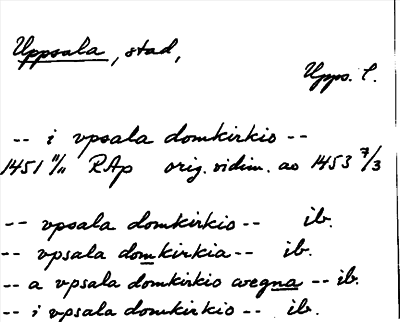 Uppsala, stad,
Upps. l.
-- i vpsala domkirkio --
1451 11/11 RAp orig. vidim. av 1453 7/3
-- vpsala domkirkio -- ib.
-- vpsala domkirkia -- ib.
-- a vpsala domkirkio wegna -- ib.
-- i vpsala domkirkio -- ib.